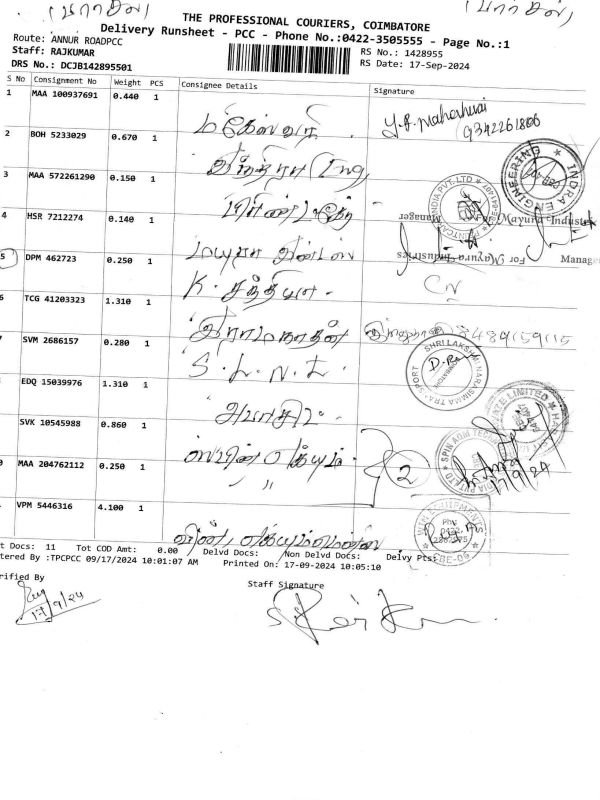 (பார்சல்) (பார்சல்)
THE PROFESSIONAL COURIERS, COIMBATORE
Delivery Runsheet - PCC - Phone No.:0422-3505555 - Page No.:1
Route: ANNUR ROADPCC RS No.: 1428955
Staff: RAJKUMAR RS Date: 17-Sep-2024
DRS No.: DCJB142895501
S No Consignment No Weight PCS Consignee Details Signature
1 MAA 100937691 0.440 1
மகேஸ்வரி 9342261806
2 BOH 5233029 0.670 1
இந்திரா Eng INDRA ENGINEERING
3 MAA 572261290 0.150 1
4 HSR 7212274 0.140 1 Manager For Mayura Industries
மயுரா
5 DPM 462723 0.250 1 For Mayura Industries Manager
K. சத்தியா
6 TCG 41203323 1.310 1
இராமநாதன் 8489159115
SVM 2686157 0.280 1
S. L. N. L. SHRI LAKSHMI NARASIMMA TRANSPORT
EDQ 15039976 1.310 1
SVK 10545988 0.860 1
MAA 204762112 0.250 1 2 17/9/24
" "
VPM 5446316 4.100 1
t Docs: 11 Tot COD Amt: 0.00 Delvd Docs: Non Delvd Docs: Delvy Pts:
tered By :TPCPCC 09/17/2024 10:01:07 AM Printed On: 17-09-2024 10:05:10
rified By Staff Signature
17/9/24